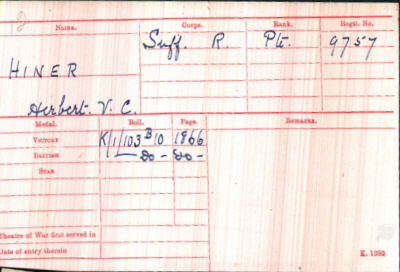 Name. Corps. Rank. Regtl. No.
Suff. R. Pte. 9757
HINER
Herbert. V. C.
Medal. Roll. Page. Remarks.
VICTORY K/1/103 B10 1866
BRITISH -do- -do-
STAR
Theatre of War first served in
Date of entry therein
K. 1380